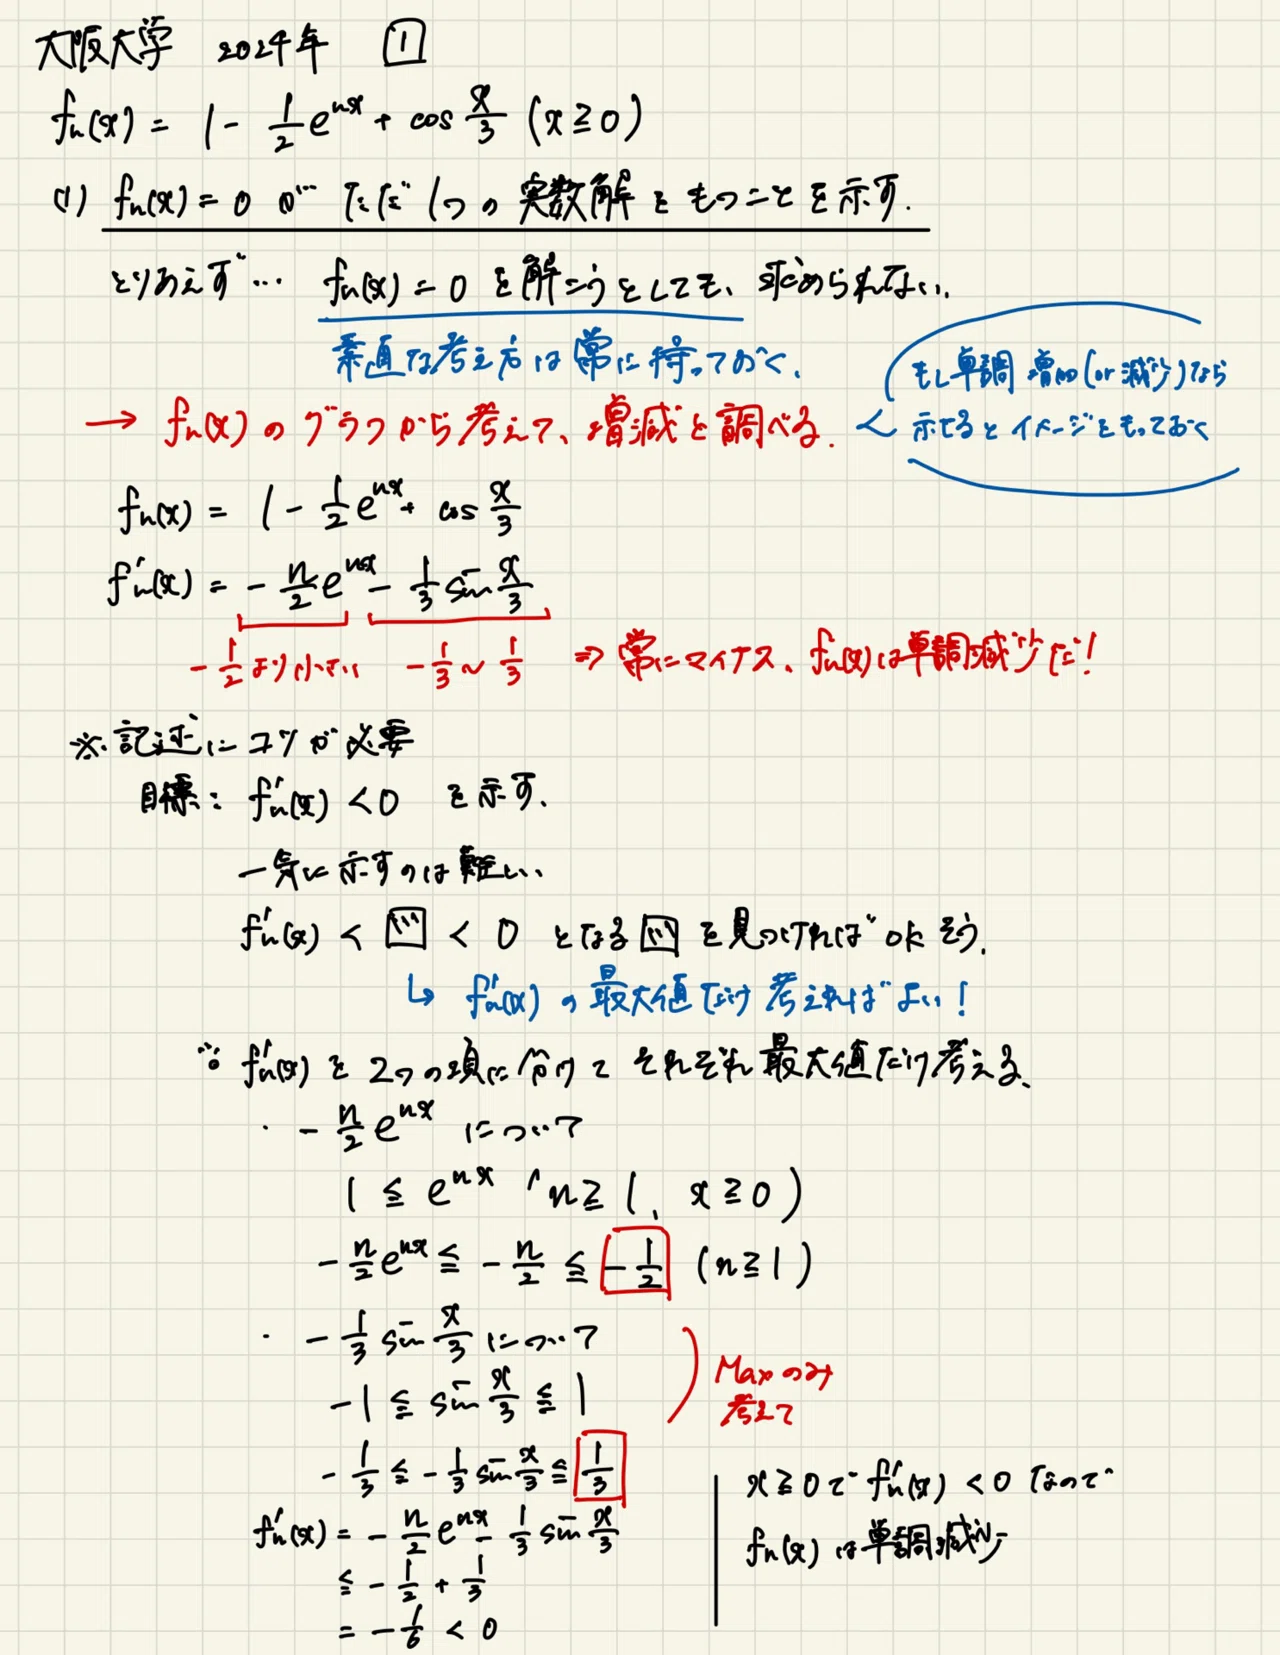 大阪大学 2024年 1
fn(x) = 1 - 1/2 e^{nx} + cos x/3 (x≧0)
(1) fn(x) = 0 が ただ1つの実数解をもつことを示す.
とりあえず… fn(x) = 0 を解こうとしても、求められない.
素直な考え方は常に持っておく.
もし単調増加(or 減少)なら
→ fn(x)のグラフから考えて、増減を調べる.
示せるとイメージをもっておく
fn(x) = 1 - 1/2 e^{nx} + cos x/3
f'n(x) = - n/2 e^{nx} - 1/3 sin x/3
- 1/2 より小さい - 1/3 ~ 1/3 ⇒ 常にマイナス、fn(x)は単調減少だ!
※. 記述にコツが必要
目標: f'n(x) < 0 を示す.
一気に示すのは難しい.
f'n(x) < □ < 0 となる □ を見つければ ok そう.
↳ f'n(x) の最大値だけ考えればよい!
∵ f'n(x) を 2つの項に分けて それぞれ最大値だけ考える.
・ - n/2 e^{nx} について
1 ≦ e^{nx} (n≧1, x≧0)
- n/2 e^{nx} ≦ - n/2 ≦ - 1/2 (n≧1)
・ - 1/3 sin x/3 について
-1 ≦ sin x/3 ≦ 1
Maxのみ
考えて
- 1/3 ≦ - 1/3 sin x/3 ≦ 1/3
f'n(x) = - n/2 e^{nx} - 1/3 sin x/3
≦ - 1/2 + 1/3
= - 1/6 < 0
x≧0で f'n(x) < 0 なので
fn(x) は単調減少